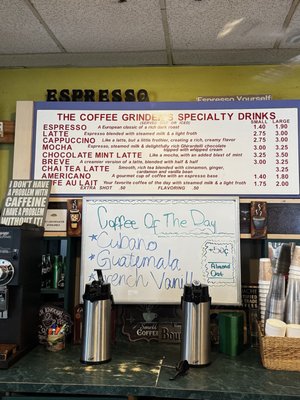 ESPRESSO
Espresso Yourself
THE COFFEE GRINDER'S SPECIALTY DRINKS
(SERVED HOT OR ICED)
SMALL LARGE
ESPRESSO A European classic of a rich dark roast 1.40 1.90
LATTE Espresso blended with steamed milk & a light froth 2.75 3.00
CAPPUCCINO Like a latte, but a little frothier, creating a rich, creamy flavor 2.75 3.00
MOCHA Espresso, steamed milk & delightfully rich Ghirardelli chocolate 3.00 3.25
CHOCOLATE MINT LATTE Like a mocha, with an added blast of mint 3.25 3.50
BREVE A creamier version of a latte, blended with half & half 3.00 3.25
CHAI TEA LATTE Smooth, rich tea blended with cinnamon, ginger, 3.25
cardamon and vanilla bean
AMERICANO Espresso with steamed water 1.40 1.80
FE AU LAIT Your favorite coffee of the day with steamed milk & a light froth 1.75 2.00
EXTRA SHOT .50 FLAVORING .50
I DON'T HAVE
A PROBLEM WITH
CAFFEINE
I HAVE A PROBLEM
WITHOUT IT!
Coffee Of The Day
*Cubano
*Guatemala
*French Vanill
Decaf:
Almond